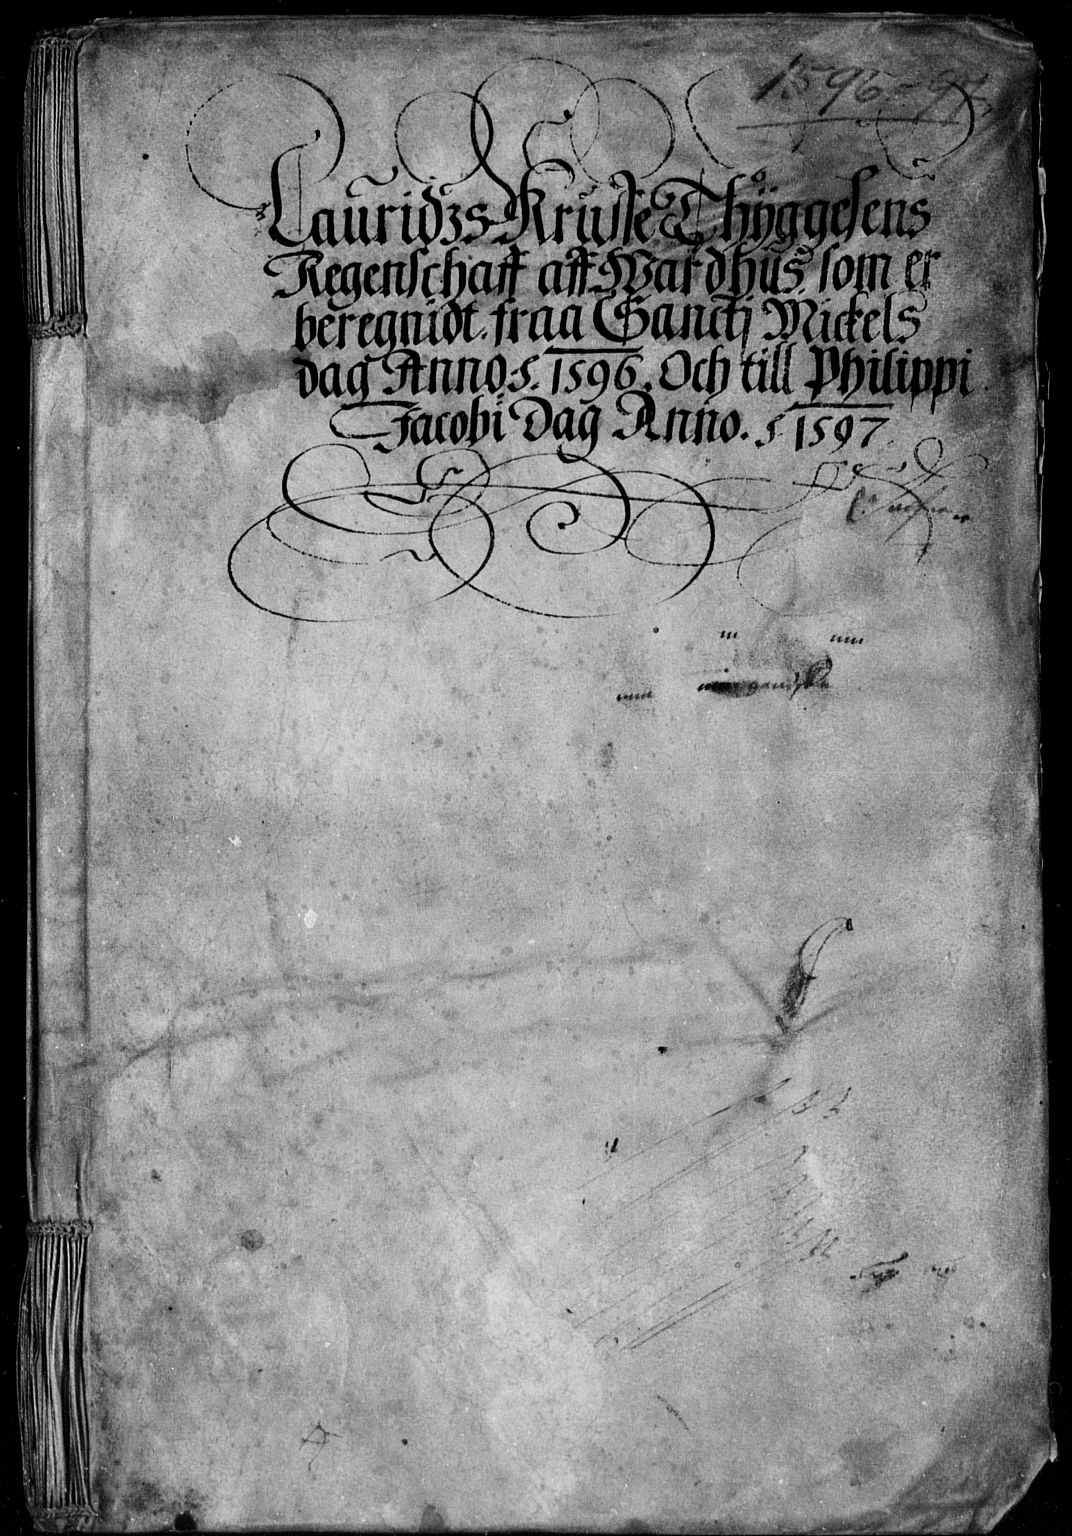 1596-97
Lauridzs Kruse Thyggesens
Regenschaff aff Wardhus som er
beregnidt fraa Sancti Mickels
dag Anno 1596. Och till Philippi
Jacobi Dag Anno. 1597.